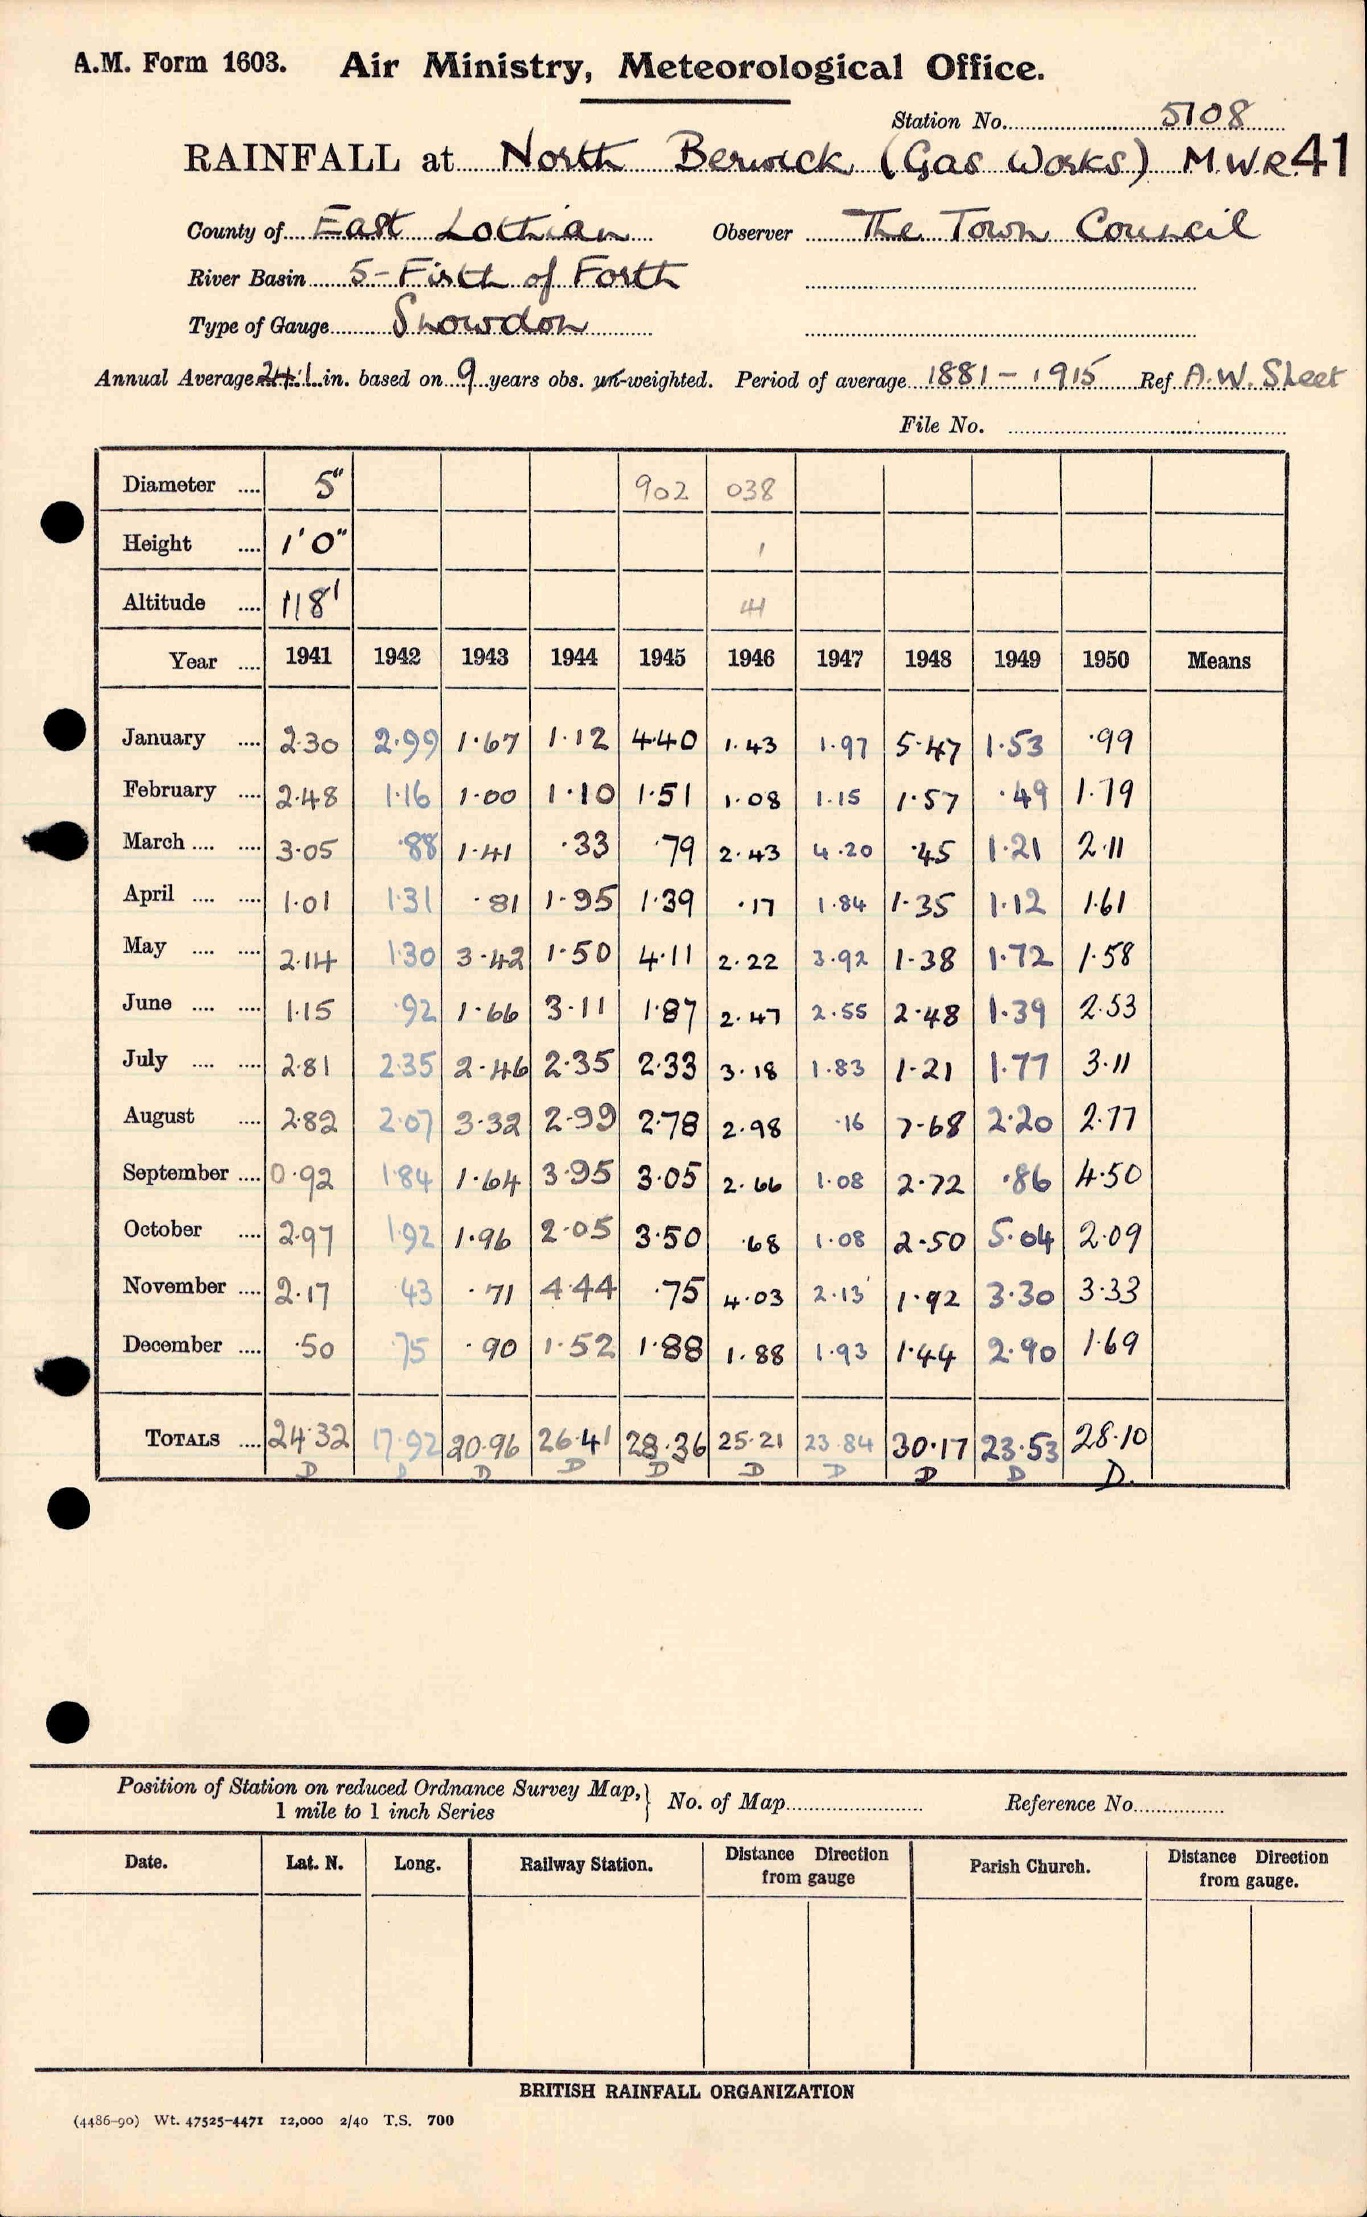 A.M. Form 1603. Air Ministry, Meteorological Office.
Station No. 5108
RAINFALL at North Berwick (Gas Works) M.W.R. 41
County of East Lothian Observer The Town Council
River Basin 5-Firth of Forth
Type of Gauge Snowdon
Annual Average 24.1 in. based on 9 years obs. un-weighted. Period of average 1881-1915 Ref A.W. Sheet
File No.
Diameter .... 5" 902 038
Height .... 1'0" 1
Altitude .... 118' 41
Year .... 1941 1942 1943 1944 1945 1946 1947 1948 1949 1950 Means
January .... 2.30 2.99 1.67 1.12 4.40 1.43 1.97 5.47 1.53 .99
February .... 2.48 1.16 1.00 1.10 1.51 1.08 1.15 1.57 .49 1.79
March .... .... 3.05 .88 1.41 .33 .79 2.43 4.20 .45 1.21 2.11
April .... .... 1.01 1.31 .81 1.95 1.39 .17 1.84 1.35 1.12 1.61
May .... .... 2.14 1.30 3.42 1.50 4.11 2.22 3.92 1.38 1.72 1.58
June .... .... 1.15 .92 1.66 3.11 1.87 2.47 2.55 2.48 1.39 2.53
July .... .... 2.81 2.35 2.46 2.35 2.33 3.18 1.83 1.21 1.77 3.11
August .... 2.82 2.07 3.32 2.99 2.78 2.98 .16 7.68 2.20 2.77
September .... 0.92 1.84 1.64 3.95 3.05 2.66 1.08 2.72 .86 4.50
October .... 2.97 1.92 1.96 2.05 3.50 .68 1.08 2.50 5.04 2.09
November .... 2.17 .43 .71 4.44 .75 4.03 2.13 1.92 3.30 3.33
December .... .50 .75 .90 1.52 1.88 1.88 1.93 1.44 2.90 1.69
TOTALS .... 24.32 17.92 20.96 26.41 28.36 25.21 23.84 30.17 23.53 28.10
D D D D D D D D D D.
Position of Station on reduced Ordnance Survey Map,} No. of Map Reference No.
1 mile to 1 inch Series
Date. Lat. N. Long. Railway Station. Distance Direction from gauge Parish Church. Distance Direction from gauge.
BRITISH RAINFALL ORGANIZATION
(4486-90) Wt. 47525-4471 12,000 2/40 T.S. 700